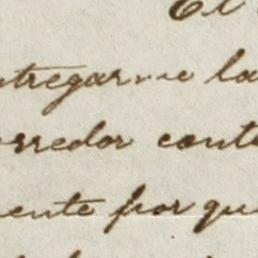 El
ntregarme la
orredor cont
mente por qu